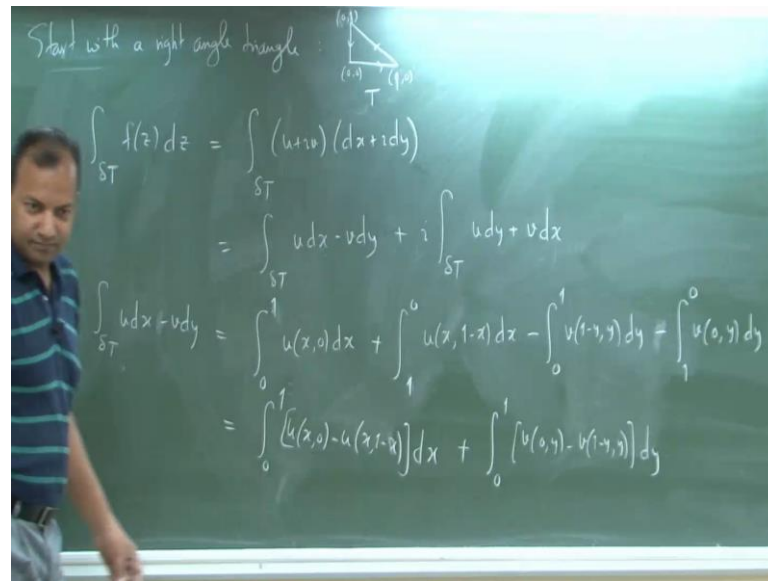 Start with a right angle triangle :
(0,1)
(0,0) (1,0)
T
∫_{δT} f(z) dz = ∫_{δT} (u+iv) (dx+idy)
= ∫_{δT} udx - vdy + i ∫_{δT} udy + vdx
∫_{δT} udx - vdy = ∫_0^1 u(x,0) dx + ∫_1^0 u(x,1-x) dx - ∫_0^1 v(1-y,y) dy - ∫_1^0 v(0,y) dy
= ∫_0^1 [u(x,0) - u(x,1-x)] dx + ∫_0^1 [v(0,y) - v(1-y,y)] dy